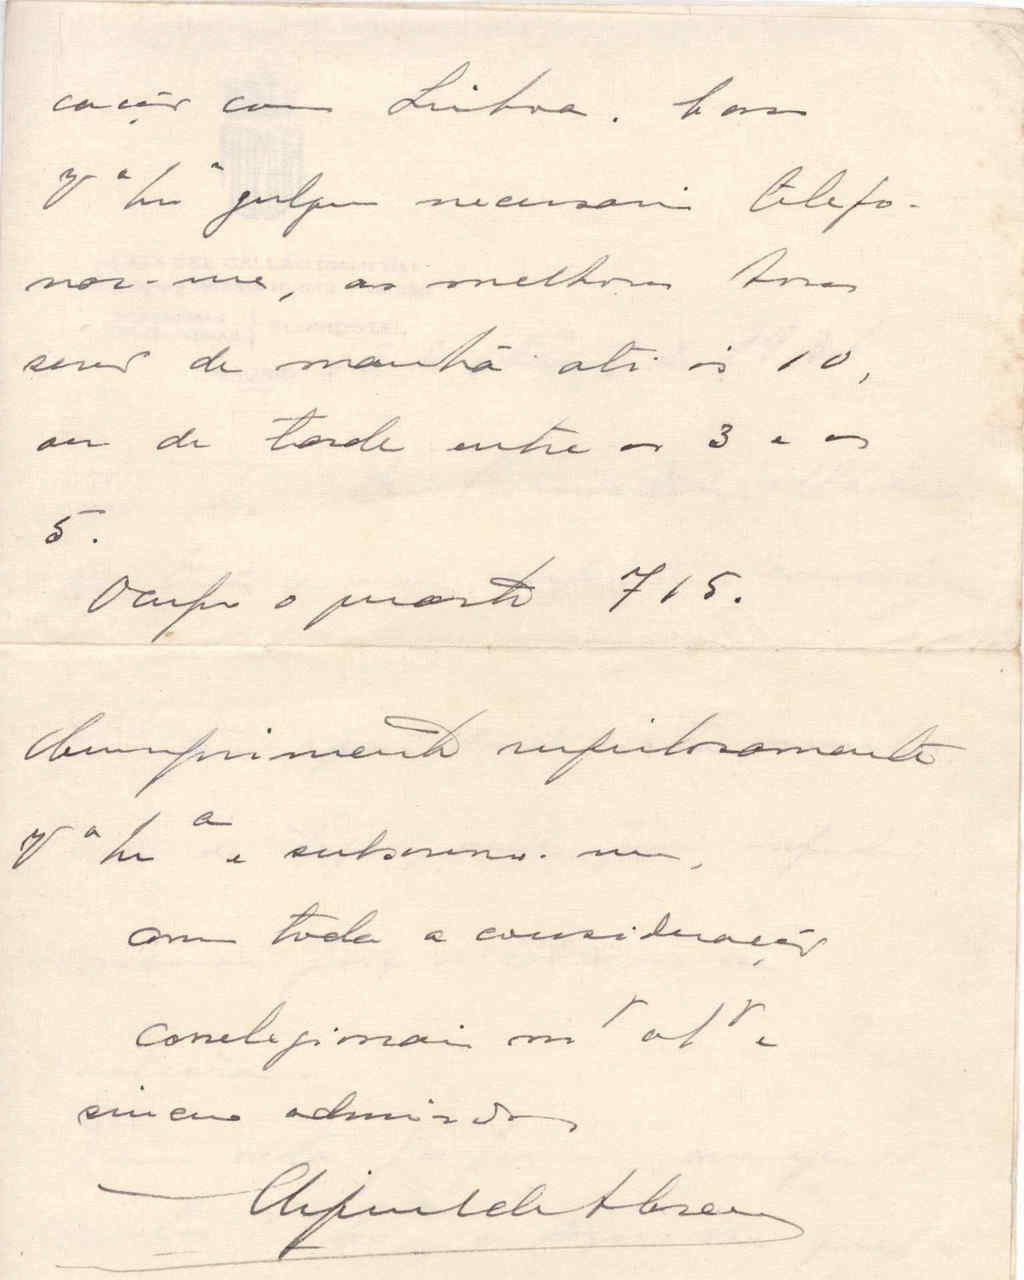 cação com Lisboa. Caso
Vª Exª julgue necessario telefo-
nar-me, as melhores horas
serão de manhã até ás 10,
ou de tarde entre as 3 e as
5.
Ocupo o quarto 715.
Cumprimento respeitosamente
Vª Exª e subscrevo-me,
com toda a consideração
correlegionario mto atto e
sincero admirador
de Abreu